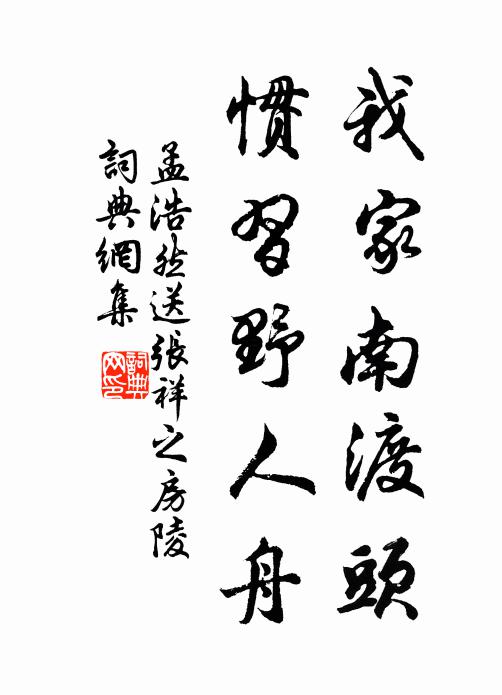 我家南渡頭
慣習野人舟
孟浩然送張祥之房陵
詞典網集
詞典網印